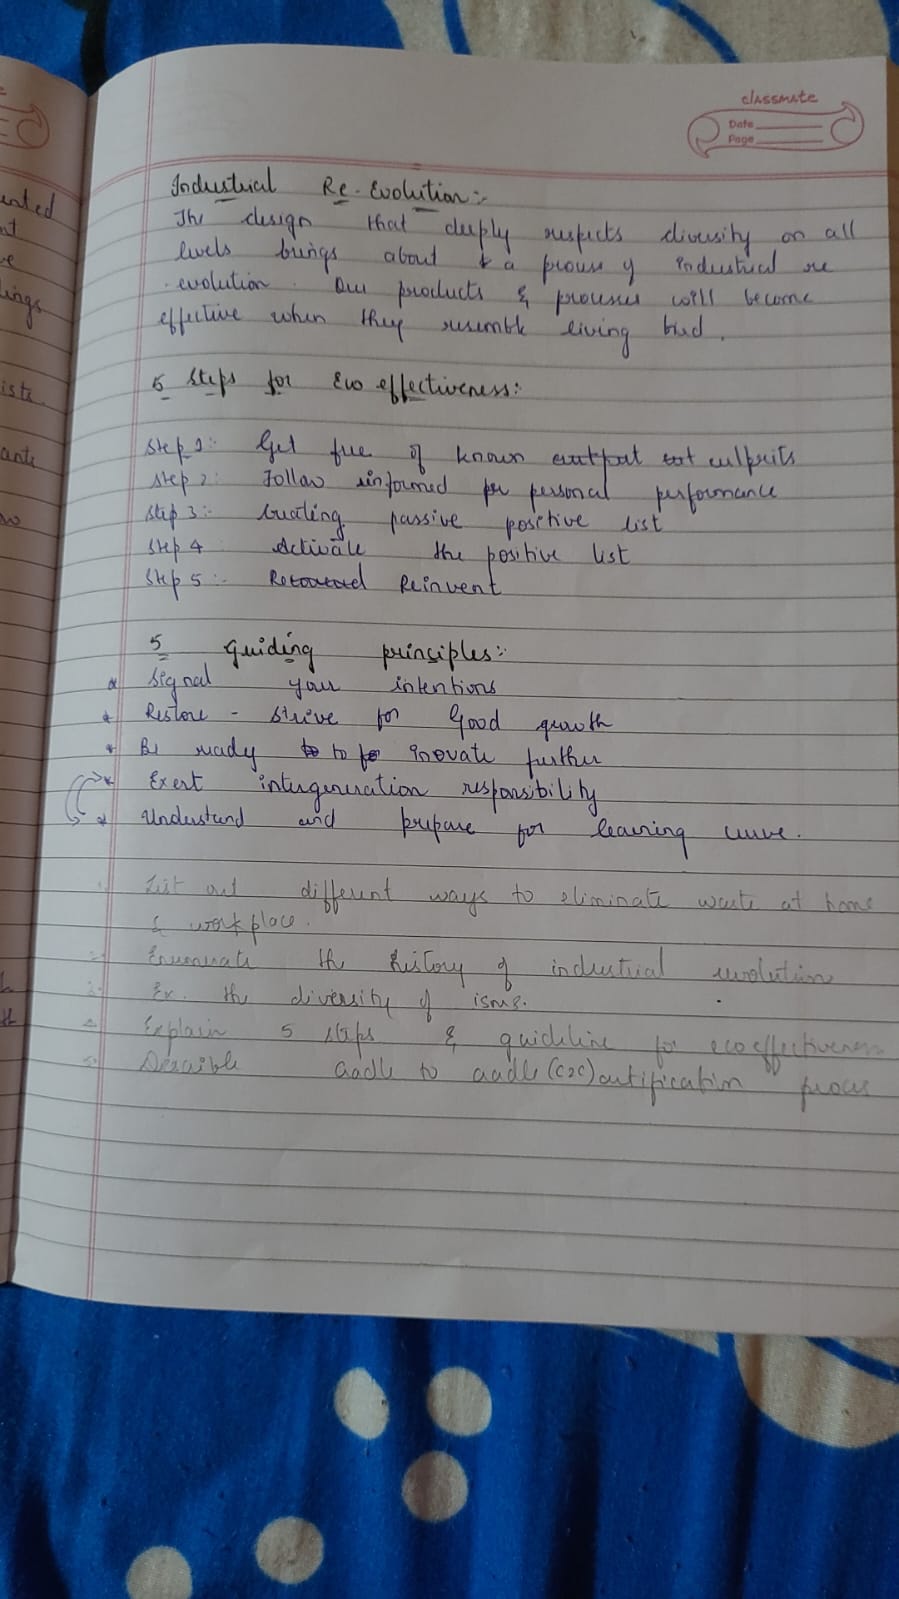 classmate
Date
Page
Industrial Re-Evolution:-
The design that deeply respects diversity on all
levels brings about a process of industrial re
evolution. Our products & processes will become
effective when they resemble living bird.
5 Steps for Eco effectiveness:-
Step 1:- Get free of known culprits
Step 2: Follow informed personal performance
Step 3:- Creating passive positive list
Step 4 Activate the positive list
Step 5:- Reinvent
5 Guiding principles:-
* Signal your intentions
* Restore - Strive for Good growth
* Be ready to inovate further
* Exert intergeneration responsibility
* Understand and prepare for learning curve.
1. List out different ways to eliminate waste at home
& workplace.
2. Enumerate the history of industrial revolution
3. Ex. the diversity of isms.
4. Explain 5 steps & guideline for ecoeffectiveness
5. Describle cradle to cradle (C2C) certification process
ented
nt
ve
lings
ists
ants